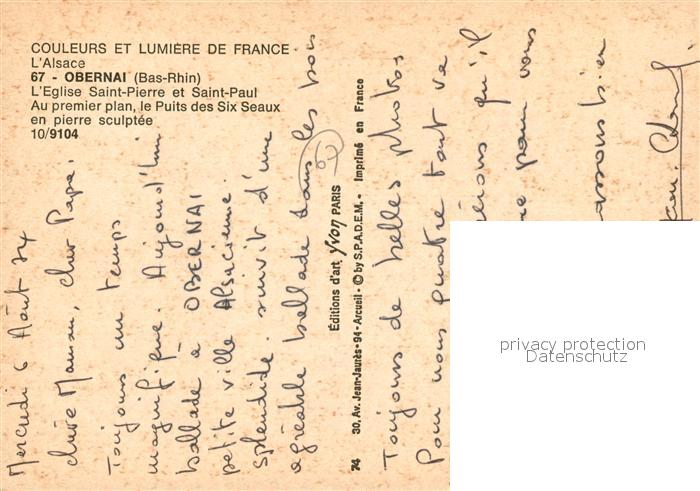 COULEURS ET LUMIÈRE DE FRANCE
L'Alsace
67 - OBERNAI (Bas-Rhin)
L'Eglise Saint-Pierre et Saint-Paul
Au premier plan, le Puits des Six Seaux
en pierre sculptée
10/9104
Mercredi 6 Août 74
chère Maman, cher Papa.
Toujours un temps
magnifique. Aujourd'hui
ballade à OBERNAI
petite ville Alsacienne.
splendide. suivit d'une
agréable ballade dans les bois
Editions d'art Yvon PARIS
74 30, Av. Jean-Jaurès - 94 - Arcueil - © by S.P.A.D.E.M. - Imprimé en France
Toujours de belles photos
Pour nous quatre tout va
qu'il
pour vous
bien
privacy protection
Datenschutz